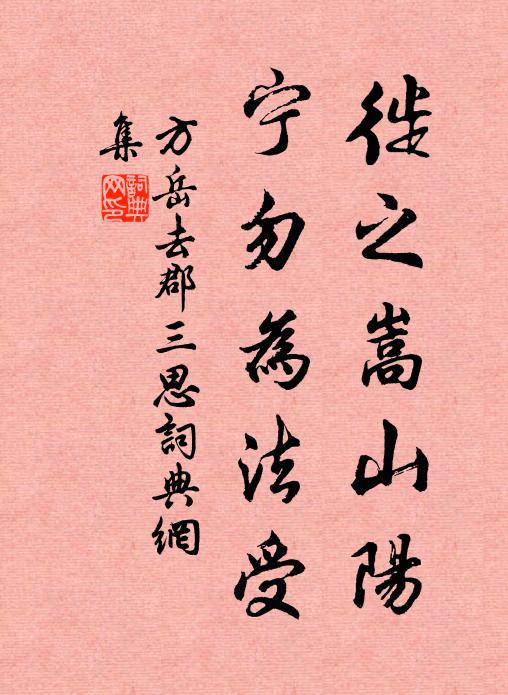 徙之嵩山陽
宁勿為法受
方岳去郡三思詞典網
集
詞典
网印